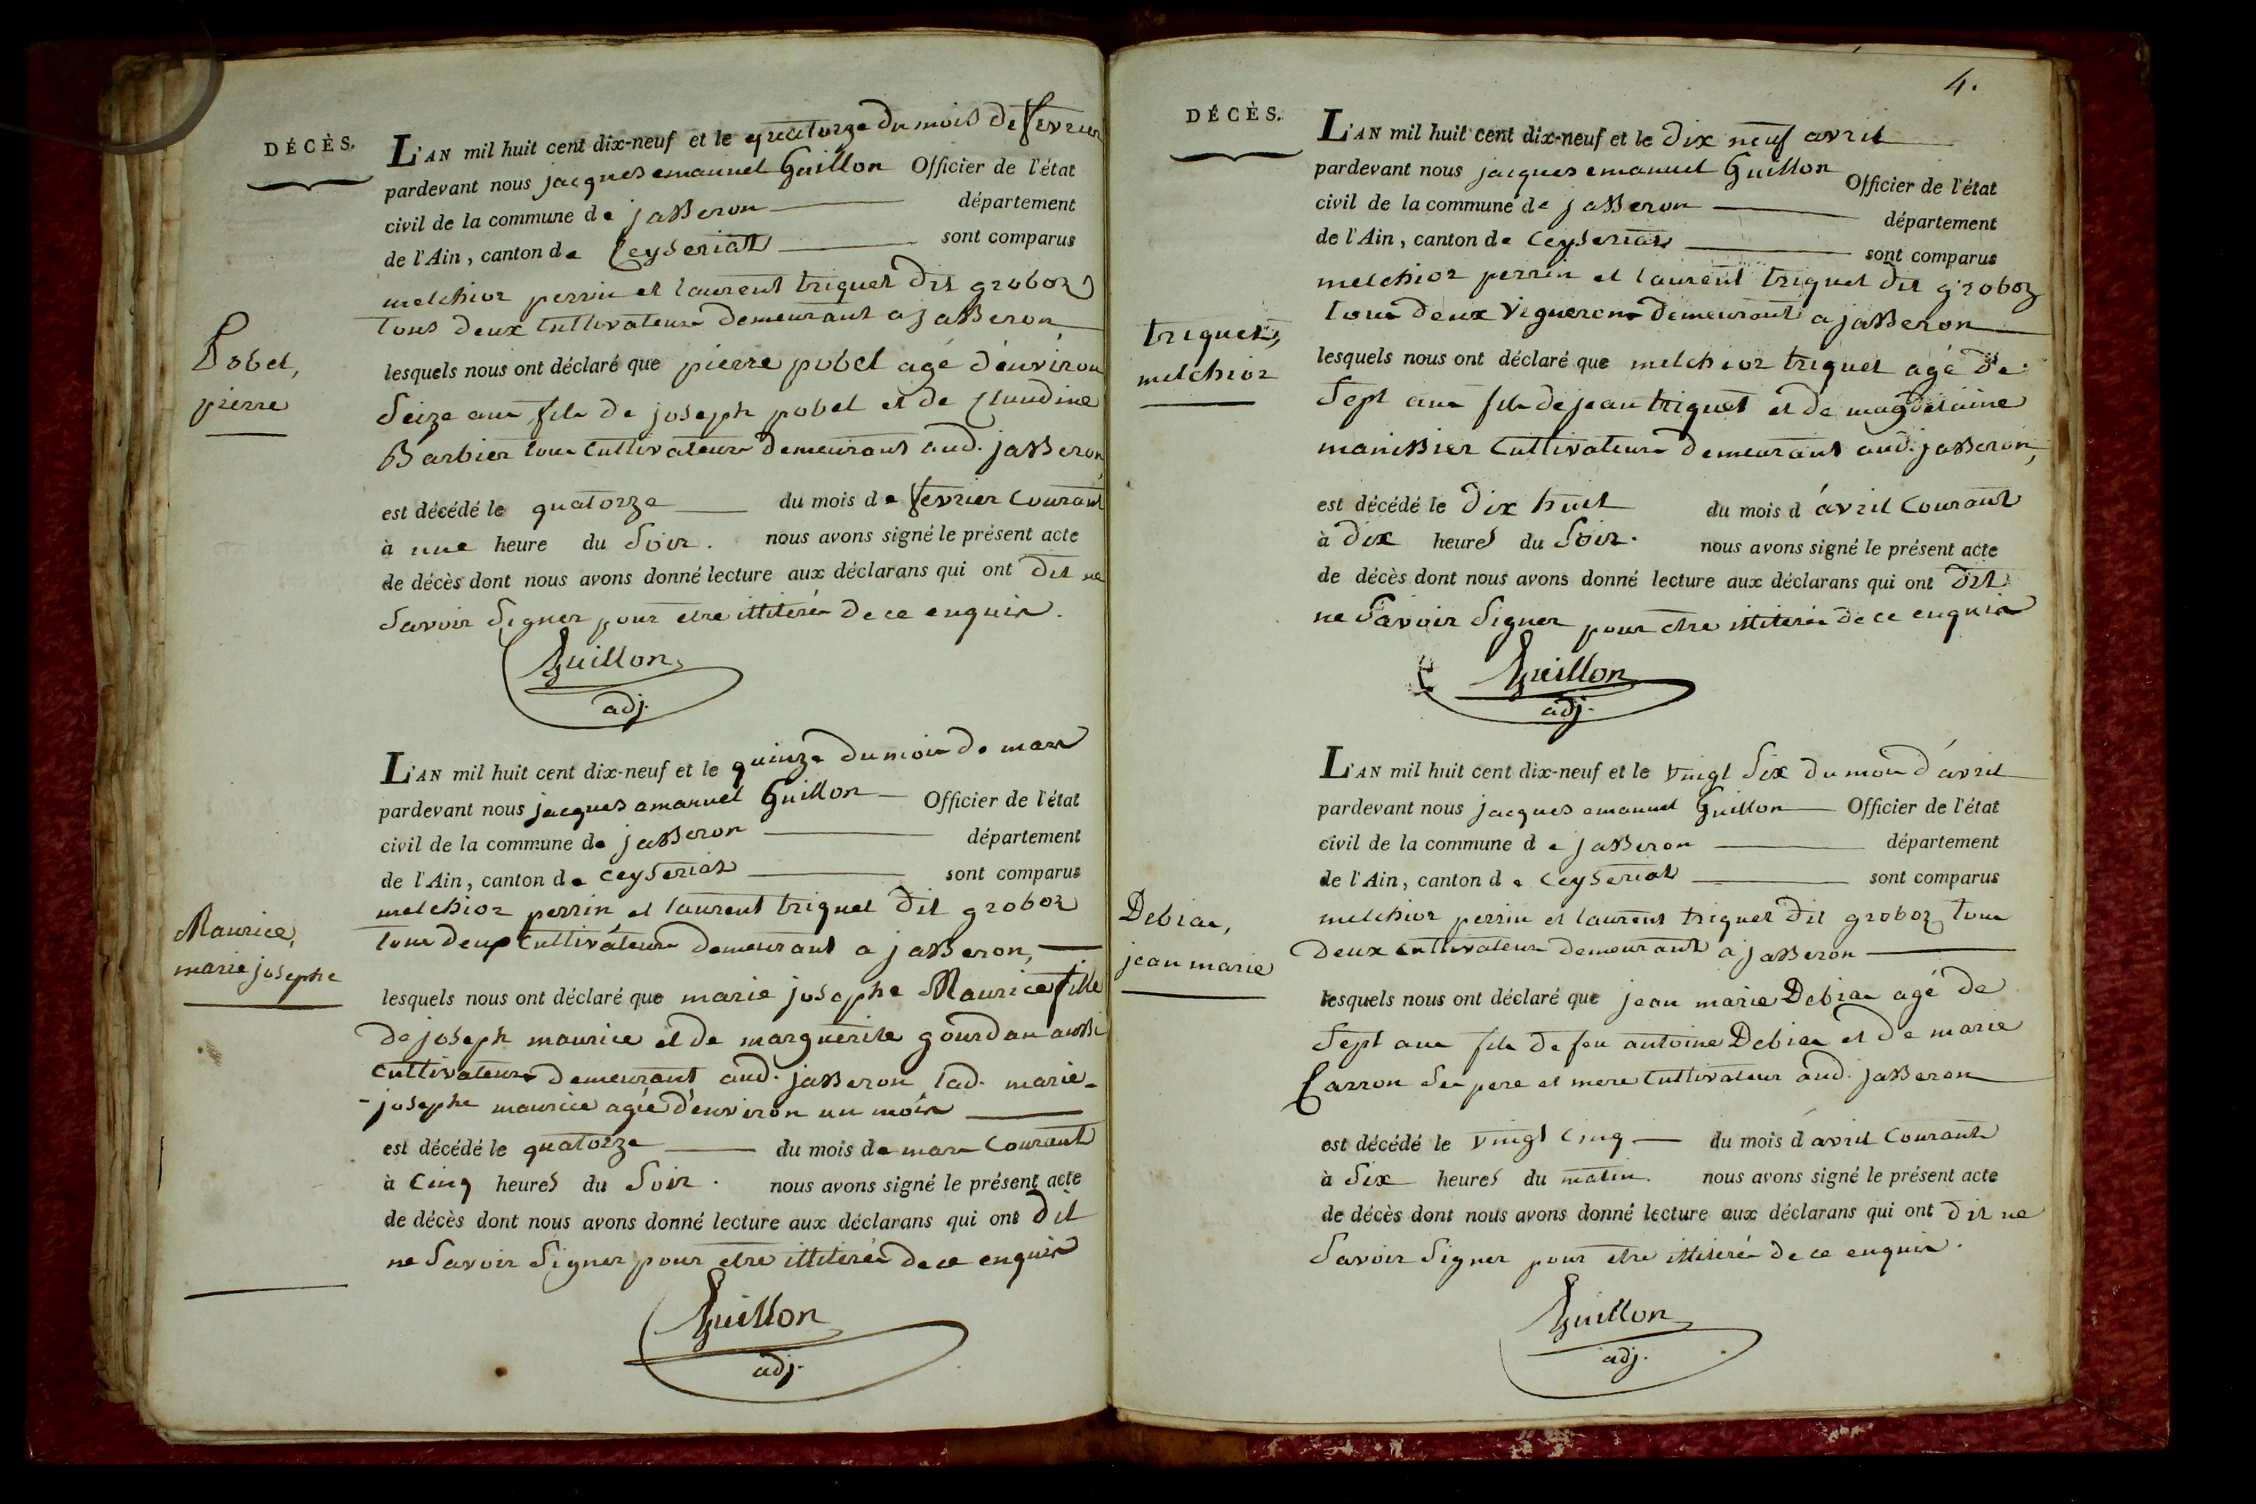 DÉCÈS.
L'AN mil huit cent dix-neuf et le quatorze du mois de fevrier
pardevant nous jacques emanuel Guillon Officier de l'état
civil de la commune de jasseron département
de l'Ain, canton de Ceyseriat sont comparus
melchior perrin et laurent triquet dit groboz
tous deux Cultivateurs demeurant a jasseron
Pobel,
pierre
lesquels nous ont déclaré que pierre pobel agé d'environ
Seize ans fils de joseph pobel et de Claudine
Barbier tous Cultivateurs demeurant aud. jasseron,
est décédé le quatorze du mois de fevrier Courant
à une heure du Soir. nous avons signé le présent acte
de décès dont nous avons donné lecture aux déclarans qui ont dit ne
Savoir Signer pour etre illiterés de ce enquis.
Guillon
adj.
L'AN mil huit cent dix-neuf et le quinze du mois de mars
pardevant nous jacques emanuel Guillon Officier de l'état
civil de la commune de jasseron département
de l'Ain, canton de Ceyseriat sont comparus
melchior perrin et laurent triquet dit groboz
tous deux Cultivateurs demeurant a jasseron,
Maurice,
marie josephe
lesquels nous ont déclaré que marie josephe Maurice fille
de joseph maurice et de marguerite gourdan aussi
Cultivateurs demeurant aud. jasseron lad. marie-
-josephe maurice agée d'environ un mois
est décédé le quatorze du mois de mars Courant
à Cinq heures du Soir. nous avons signé le présent acte
de décès dont nous avons donné lecture aux déclarans qui ont dit
ne Savoir Signer pour etre illiterés de ce enquis
Guillon
adj.
4.
DÉCÈS.
L'AN mil huit cent dix-neuf et le dix neuf avril
pardevant nous jacques emanuel Guillon Officier de l'état
civil de la commune de jasseron département
de l'Ain, canton de Ceyseriat sont comparus
melchior perrin et laurent triquet dit groboz
tous deux Vignerons demeurant a jasseron
triquet,
melchior
lesquels nous ont déclaré que melchior triquet agé de
Sept ans fils de jean triquet et de magdelaine
manissier Cultivateurs demeurant aud. jasseron,
est décédé le dix huit du mois d'avril Courant
à dix heures du Soir. nous avons signé le présent acte
de décès dont nous avons donné lecture aux déclarans qui ont dit
ne Savoir Signer pour etre illiterés de ce enquis
Guillon
adj.
L'AN mil huit cent dix-neuf et le vingt Six du mois d'avril
pardevant nous jacques emanuel Guillon Officier de l'état
civil de la commune de jasseron département
de l'Ain, canton de Ceyseriat sont comparus
melchior perrin et laurent triquet dit groboz tous
deux cultivateurs demeurant a jasseron
Debias,
jean marie
lesquels nous ont déclaré que jean marie Debias agé de
Sept ans fils de feu antoine Debias et de marie
Carron Ses pere et mere Cultivateurs aud. jasseron
est décédé le vingt Cinq du mois d'avril Courant
à Six heures du matin. nous avons signé le présent acte
de décès dont nous avons donné lecture aux déclarans qui ont dit ne
Savoir Signer pour etre illiterés de ce enquis.
Guillon
adj.